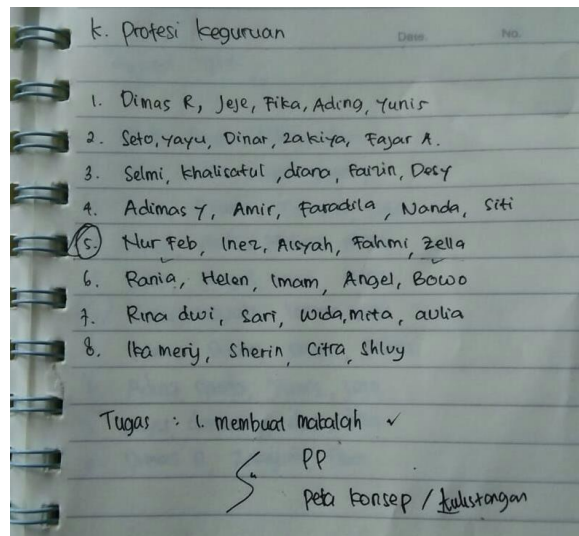 K. Profesi Keguruan
Date. No.
1. Dimas R, Jeje, Fika, Ading, Yunis
2. Seto, Yayu, Dinar, Zakiya, Fajar A.
3. Selmi, Khalisatul, diana, Faizin, Desy
4. Adimas Y, Amir, Faradila, Nanda, Siti
5. Nur Feb, Inez, Aisyah, Fahmi, Zella
6. Rania, Helen, Imam, Angel, Bowo
7. Rina dwi, Sari, Wida, mita, aulia
8. Ika mery, Sherin, Citra, Shlvy
Tugas : 1. membuat makalah ✓
PP
peta konsep / tulistangan